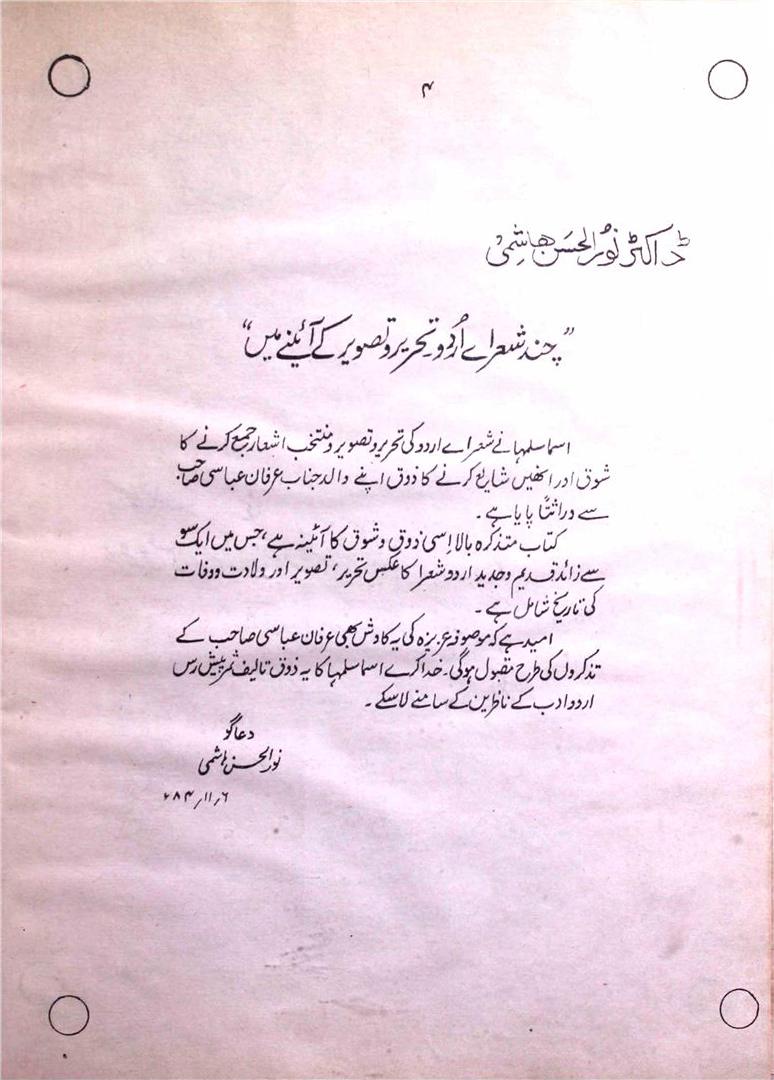 ۴
ڈاکٹر نورُ الحسَن ھاشِمی
”چند شعراے اُردو تحریر و تصویر کے آئینے میں“
اسما سلمہا نے شعراے اردو کی تحریر و تصویر و منتخب اشعار جمع کرنے کا
شوق اور انھیں شایع کرنے کا ذوق اپنے والد جناب عرفان عباسی صاحب
سے وراثتاً پایا ہے۔
کتاب متذکرہ بالا اِسی ذوق و شوق کا آئینہ ہے، جس میں ایک سو
سے زائد قدیم و جدید اردو شعرا کا عکس تحریر، تصویر اور ولادت و وفات
کی تاریخ شامل ہے۔
امید ہے کہ موصوفہ عزیزہ کی یہ کاوش بھی عرفان عباسی صاحب کے
تذکروں کی طرح مقبول ہوگی۔ خدا کرے اسما سلمہا کا یہ ذوق تالیف ثمر پیش رس
اردو ادب کے ناظرین کے سامنے لا سکے۔
دعاگو
نور الحسن ہاشمی
۶؍۱۱؍۸۴ء